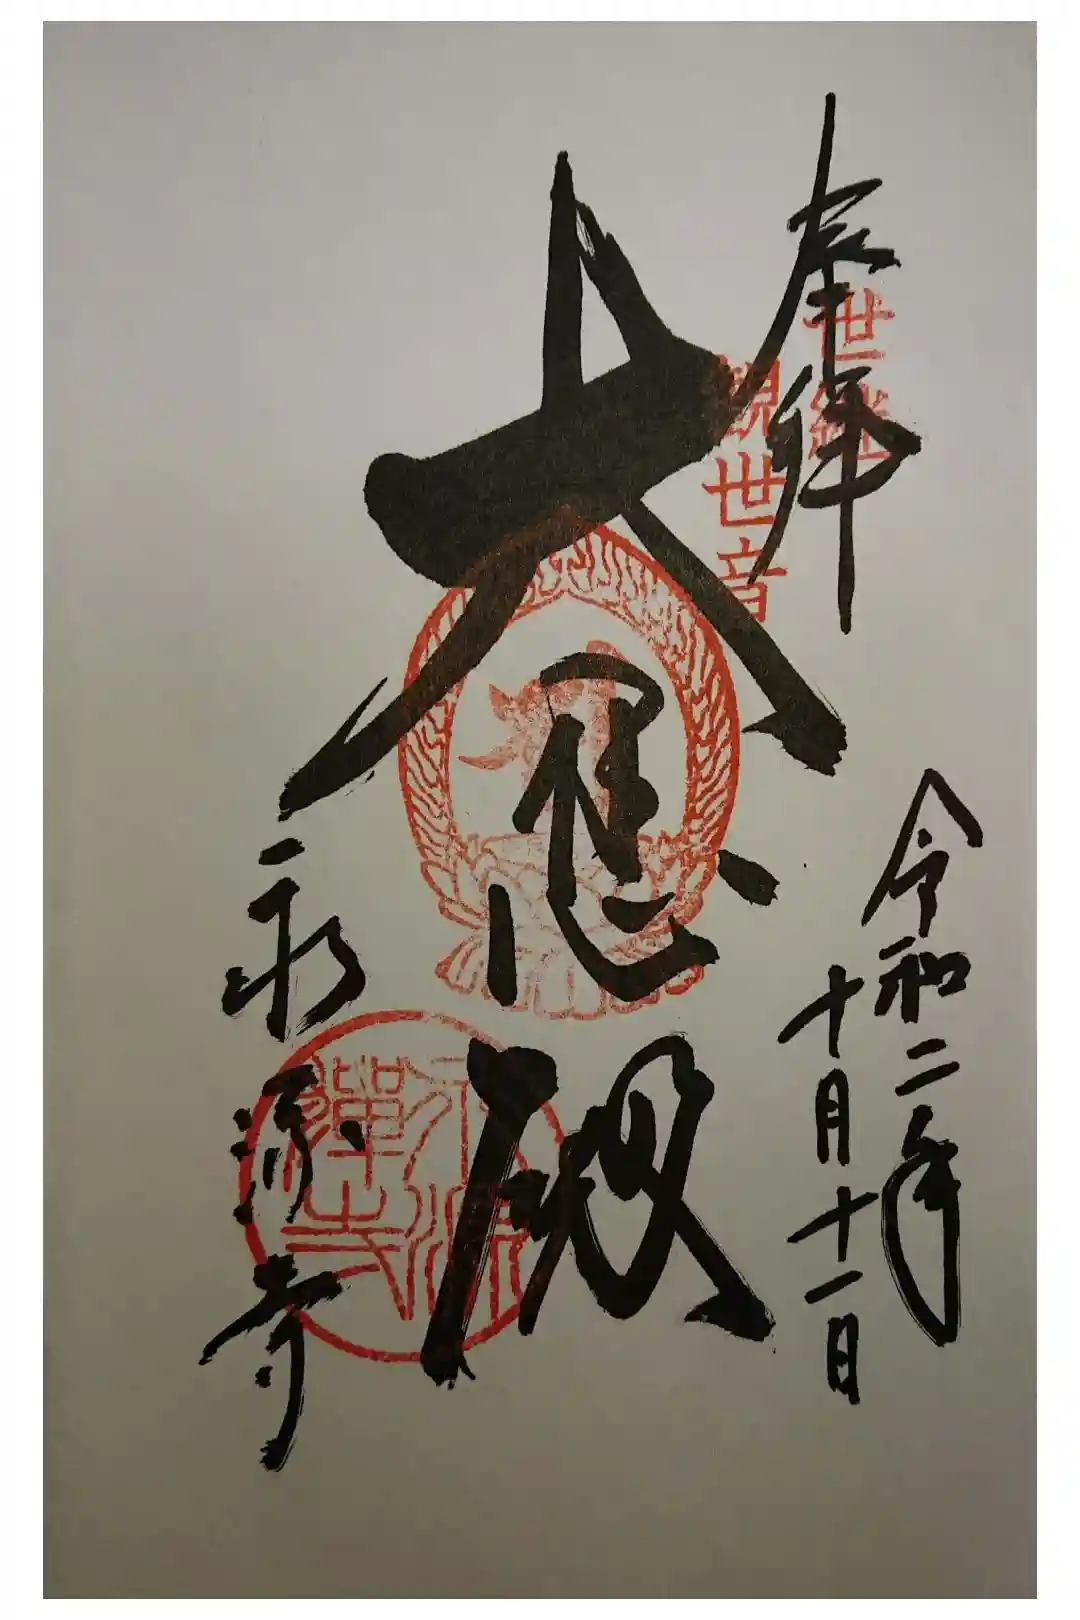 奉拝
世継
観世音
令和二年
十月十一日
大悲殿
永源寺
永源
禅寺